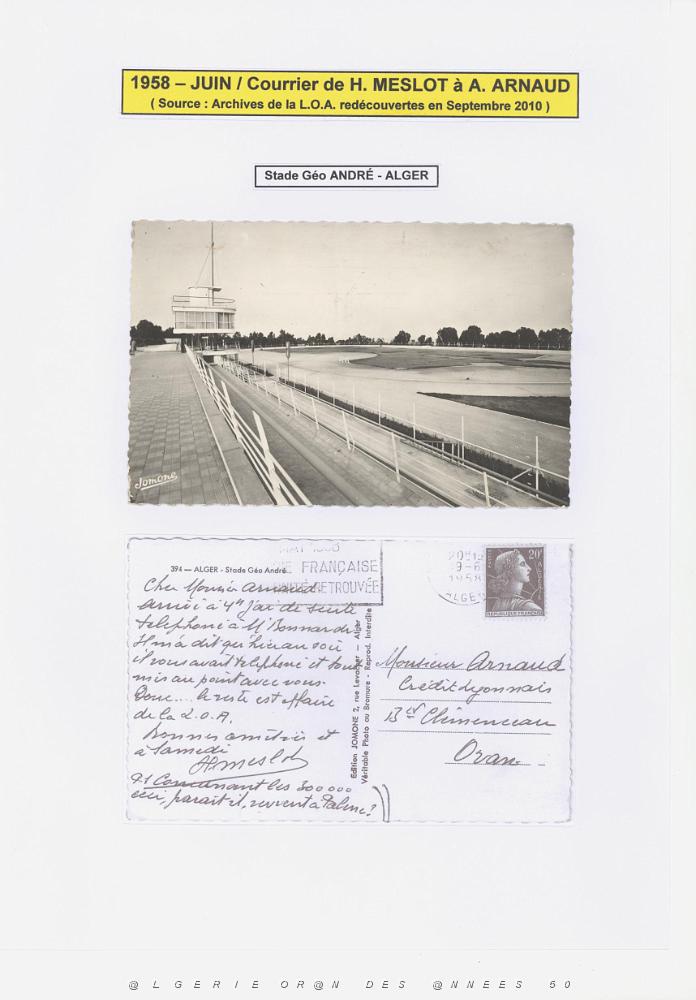 1958 – JUIN / Courrier de H. MESLOT à A. ARNAUD
( Source : Archives de la L.O.A. redécouvertes en Septembre 2010 )
Stade Géo ANDRÉ - ALGER
Jomone
394 — ALGER - Stade Géo André
MAI 1958
FRANÇAISE
RETROUVÉE
1958
ALGER
20F
ALGÉRIE
REPUBLIQUE FRANÇAISE
Cher Monsieur Arnaud
Arrivé à 4h j'ai de suite
téléphoné à Mr Bonnard
Il m'a dit qu'hier au soir
il vous avait téléphoné et tout
mis au point avec vous.
Donc.... le reste est affaire
de la L.O.A.
Bonnes amitiés et
à Samedi
HMeslot
Concernant les 300 000
ceci, paraît-il, revient à
Edition JOMONE 2, rue Levacher — Alger
Véritable Photo au Bromure - Reprod. Interdite
Monsieur Arnaud
Crédit Lyonnais
Bd Clémenceau
Oran
@ L G E R I E O R @ N D E S @ N N E E S 5 0